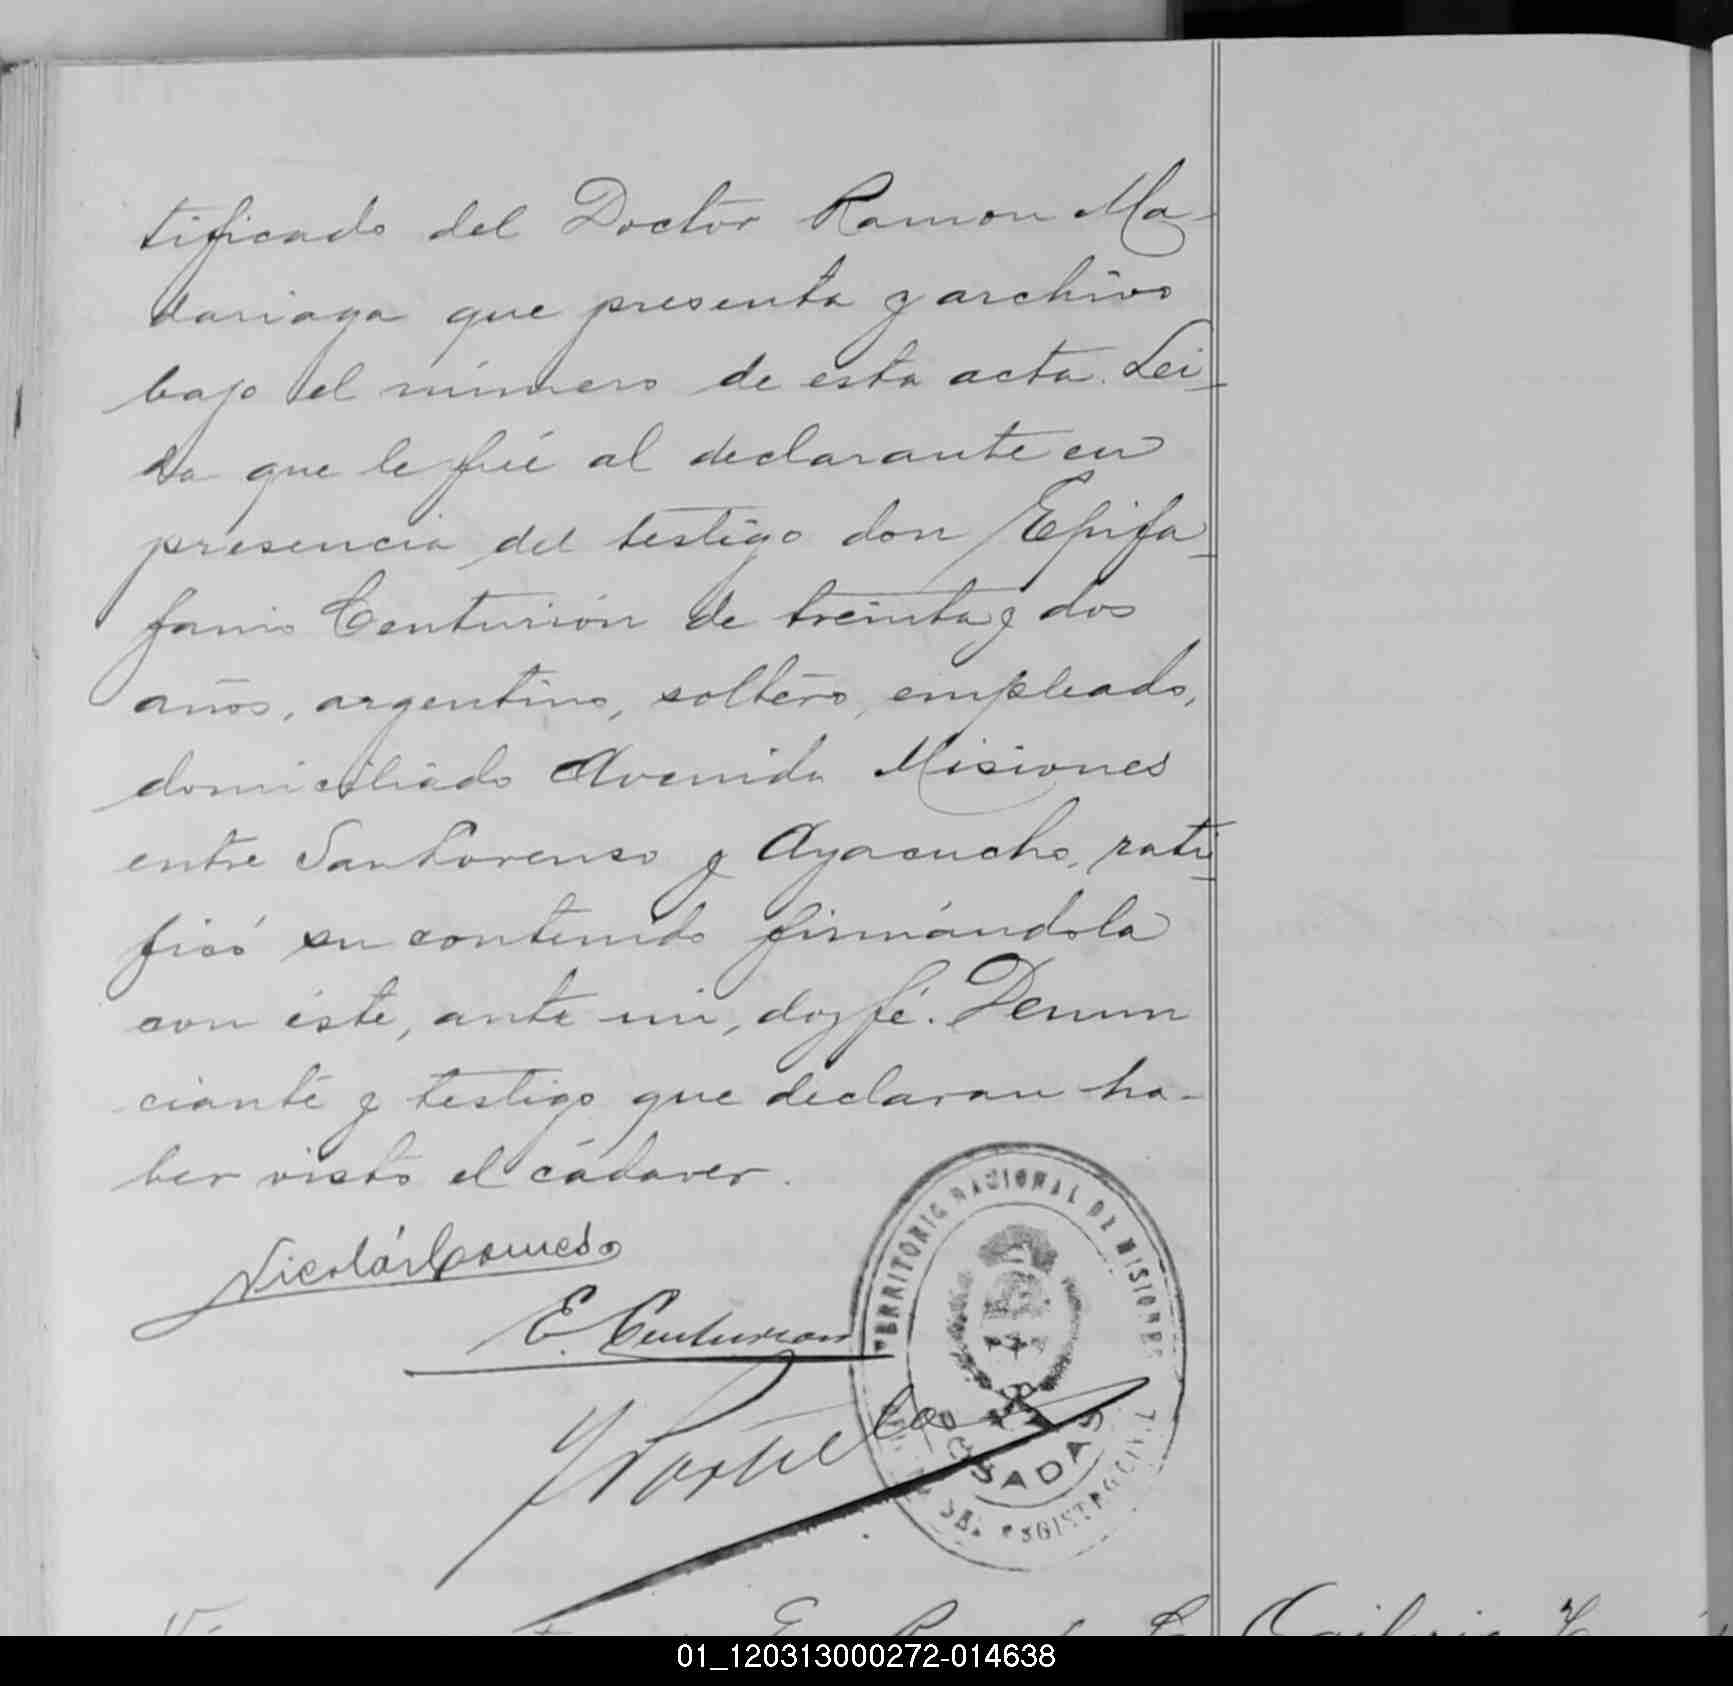 tificado del Doctor Ramon Ma-
dariaga que presenta y archivo
bajo el número de esta acta. Lei-
da que le fué al declarante en
presencia del testigo don Epifa-
fanio Centurión de treinta y dos
años, argentino, soltero, empleado,
domiciliado Avenida Misiones
entre San Lorenso y Ayacucho, rati-
ficó su contenido firmándola
con éste, ante mi, doy fé. Denun
ciante y testigo que declaran ha-
ber visto el cádaver.
Nicolás
E. Centurion
TERRITORIO NACIONAL DE MISIONES
POSADAS
DEL REGISTRO CIVIL
01_120313000272-014638